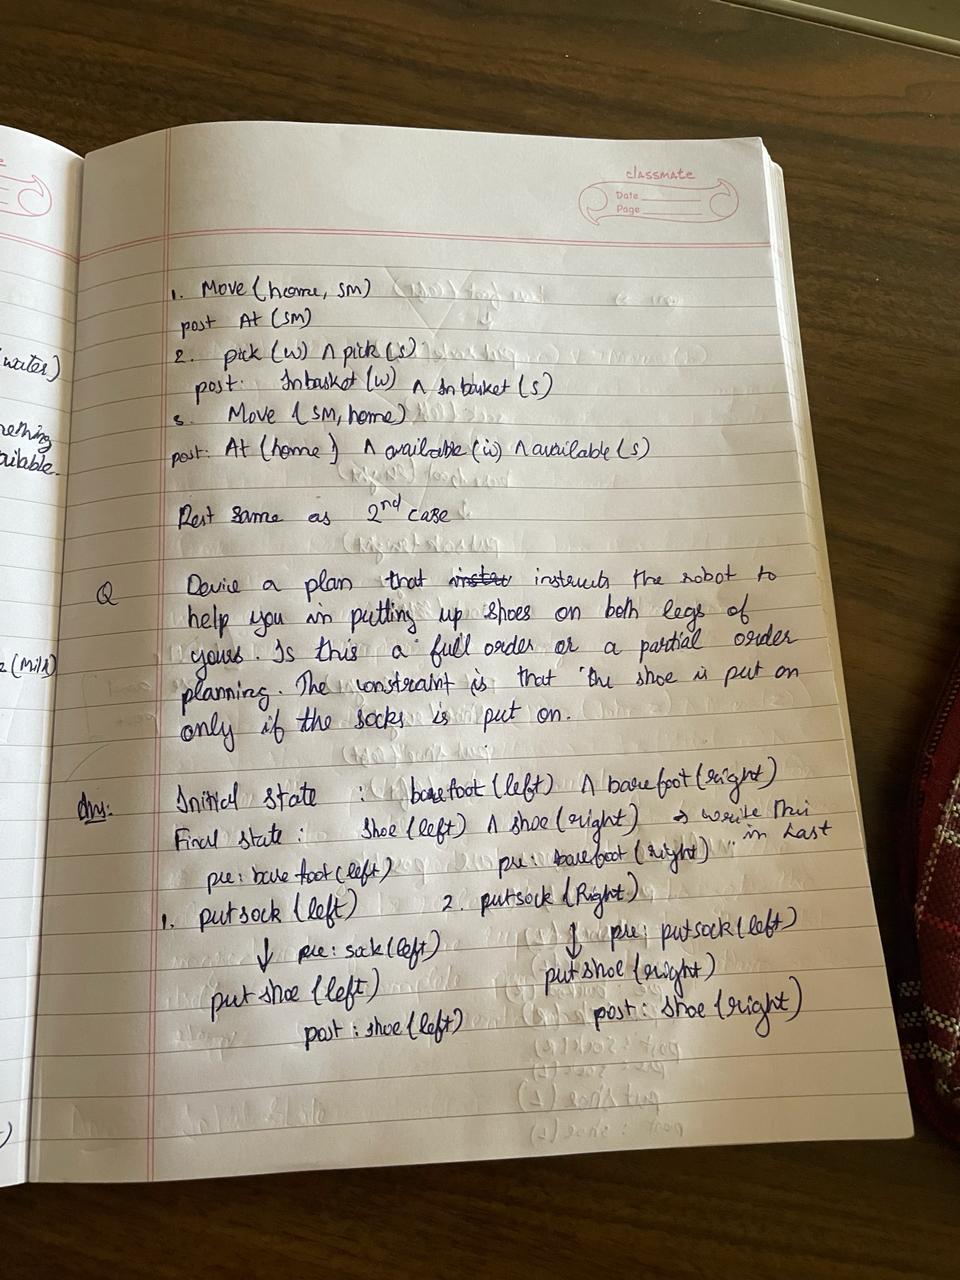 classmate
Date
Page
1. Move (home, SM)
post At (SM)
2. pick (w) ∧ pick (s)
post: Inbasket (w) ∧ Inbasket (s)
3. Move (SM, home)
post: At (home) ∧ available (w) ∧ available (s)
Rest same as 2nd case
Q Devise a plan that instructs the robot to
help you in putting up shoes on both legs of
yours. Is this a full order or a partial order
planning. The constraint is that the shoe is put on
only if the socks is put on.
Ans: Initial state : barefoot (left) ∧ barefoot (right)
Final state : Shoe (left) ∧ shoe (right) → write this
in last
pre: bare foot (left) pre: barefoot (right)
1. putsock (left) 2. putsock (Right)
↓ pre: sock (left) ↓ pre: putsock (left)
put shoe (left) put shoe (right)
post : shoe (left) post : shoe (right)
water)
ailable.
(Milk)